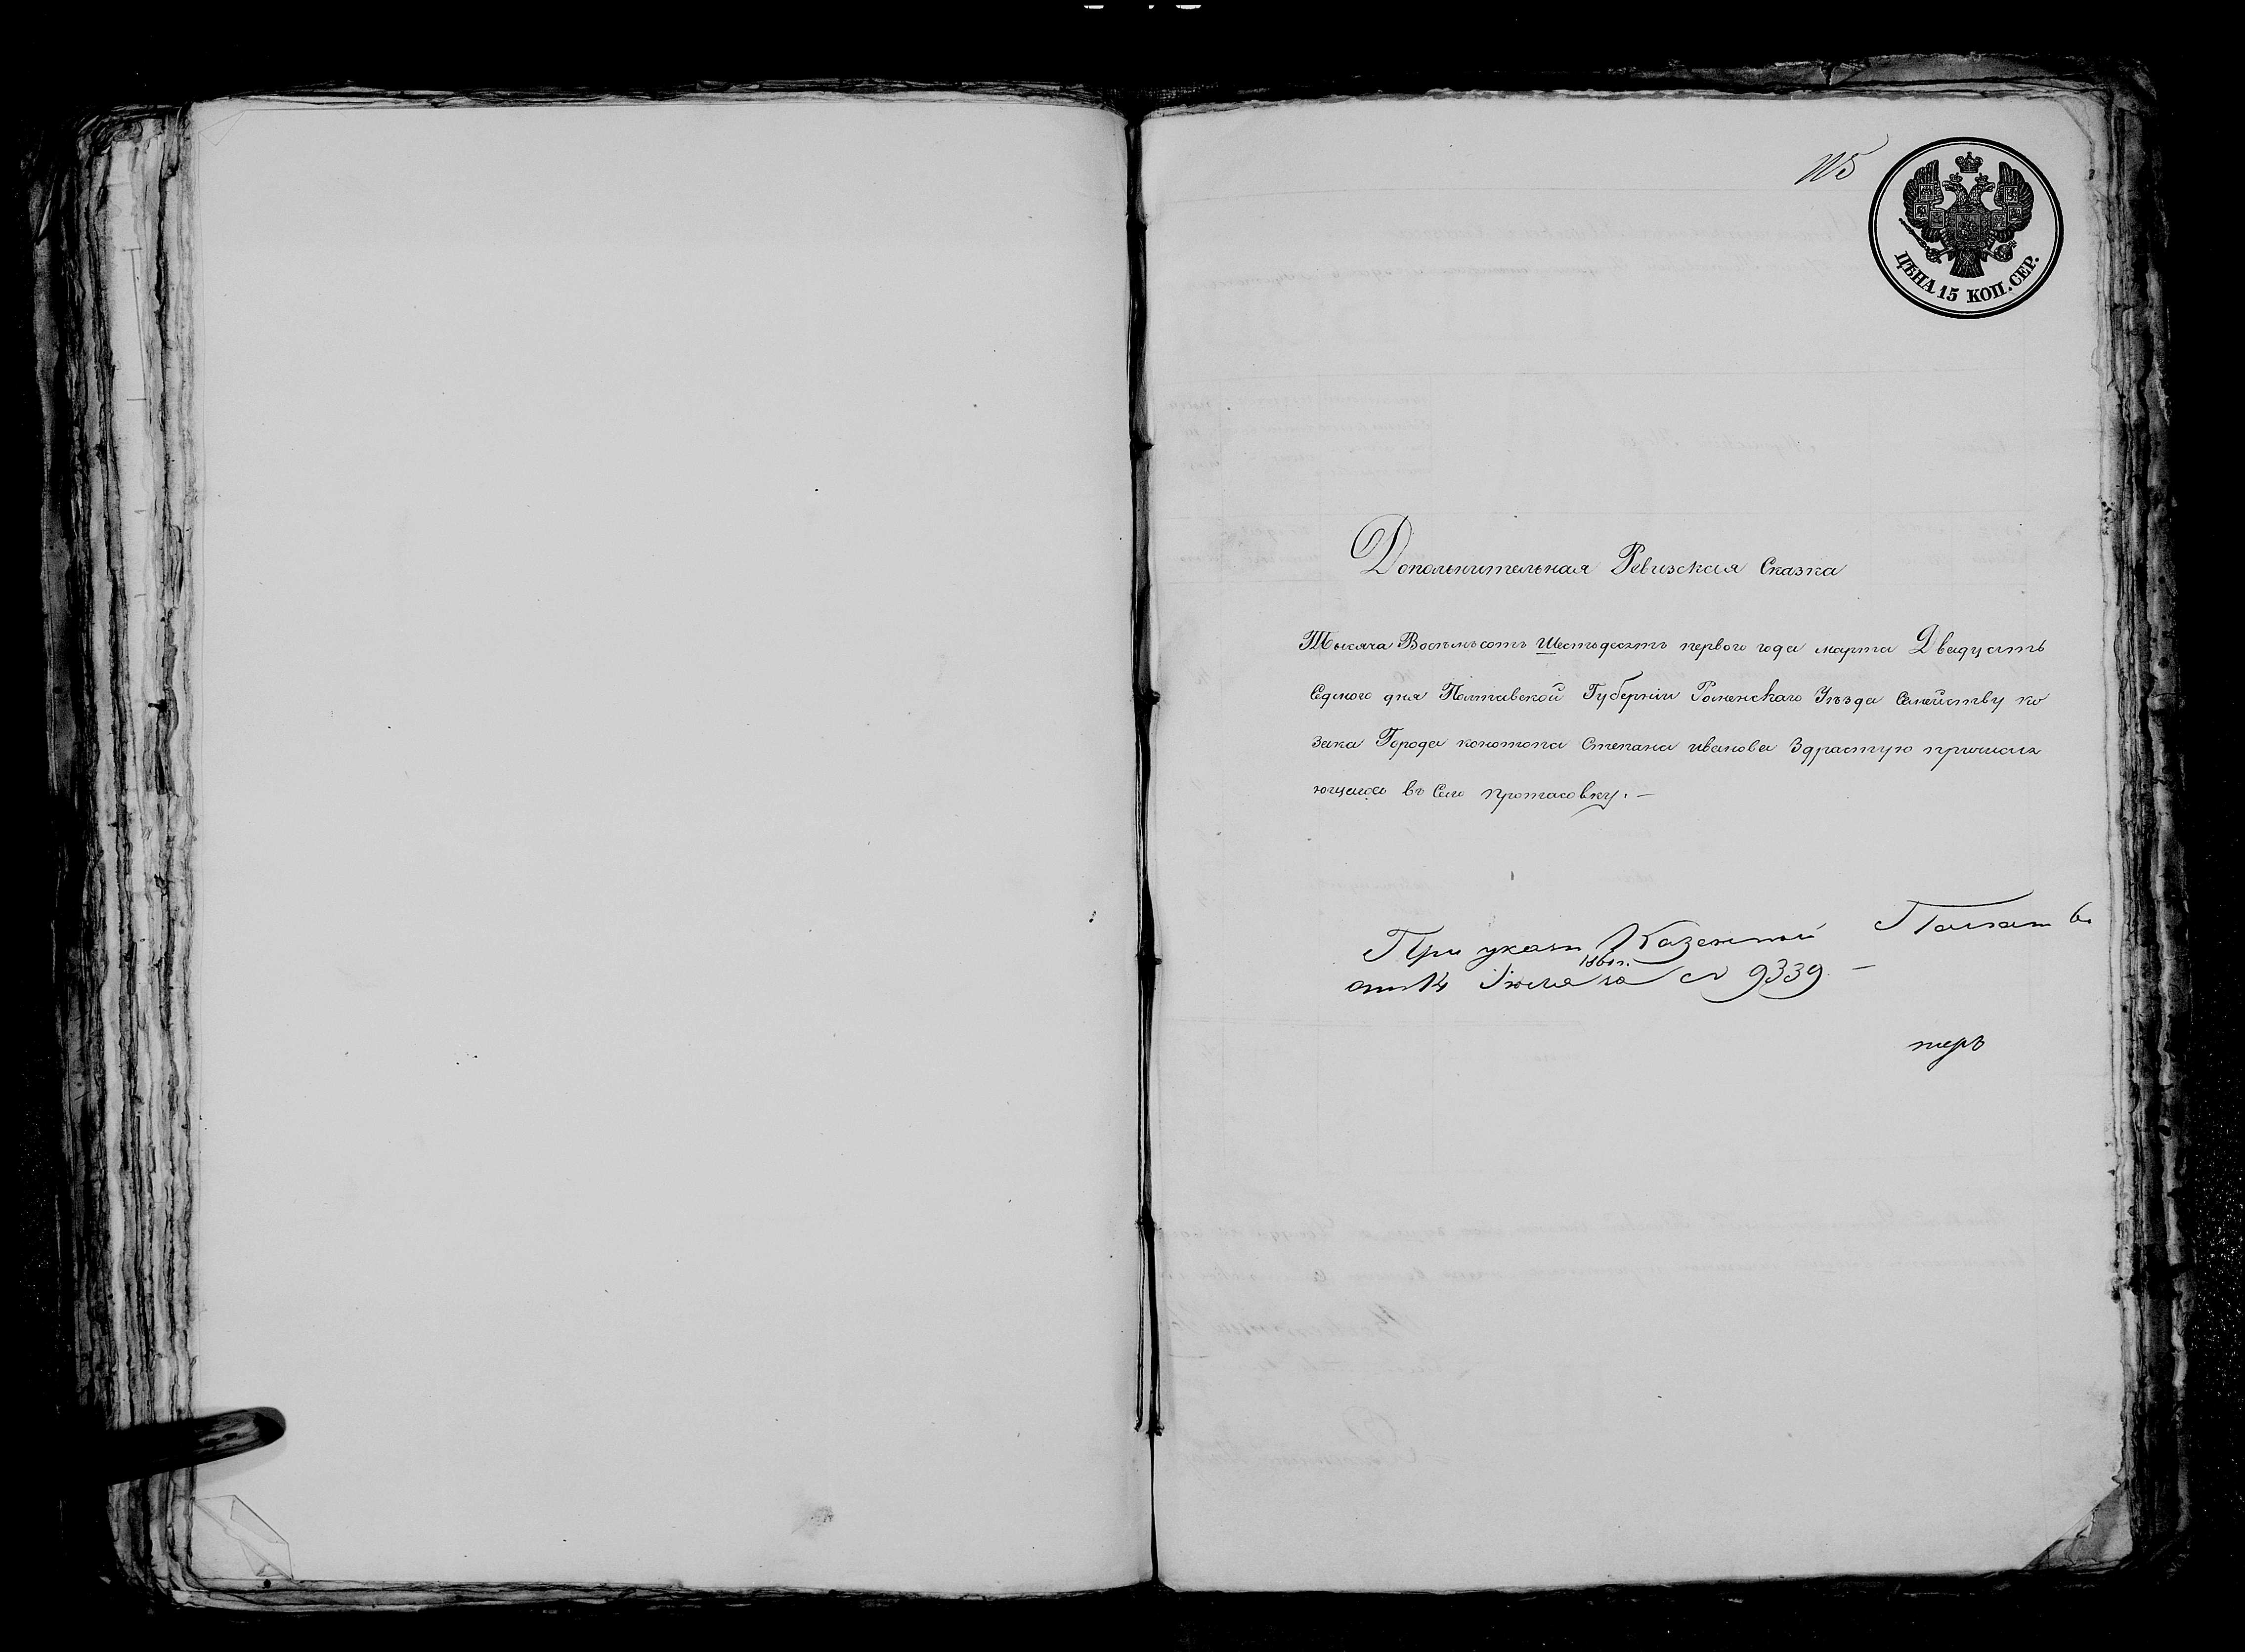 ЦѢНА 15 КОП. СЕР.
Дополнительная Ревизская Сказка
Тысяча Восѣмъсотъ Шестьдесятъ первого года марта Двадцать
Едного дня Полтавской Губерніи Роменскаго Уѣзда Семейству ко
зака Города конотопа Степана иванова Здрастую причисля
ющуюся въ Село протасовку. —
При указѣ Казенной Палаты
отъ 14 Іюля 1861 г. за № 9339 —